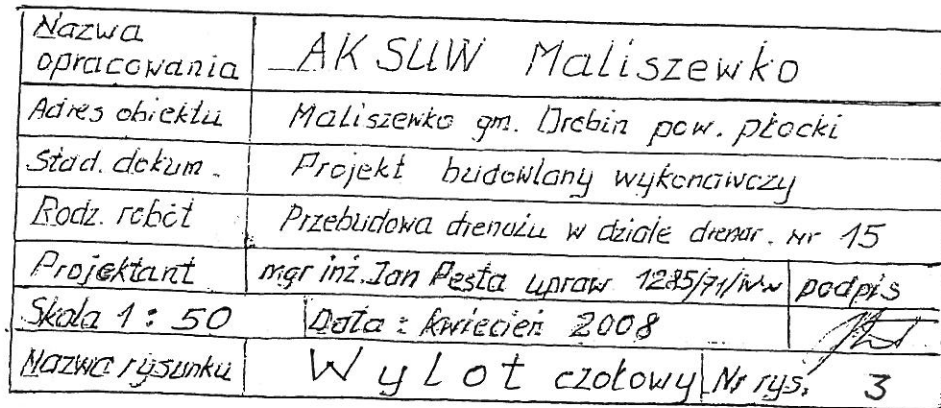 Nazwa opracowania AKSUW Maliszewko
Adres obiektu Maliszewko gm. Drobin pow. płocki
Stad. dokum. Projekt budowlany wykonawczy
Rodz. robót Przebudowa drenażu w dziale drenar. nr 15
Projektant mgr inż. Jan Pesta upraw 1285/71/Ww podpis
Skala 1 : 50 Data : kwiecień 2008
Nazwa rysunku Wylot czołowy Nr rys. 3